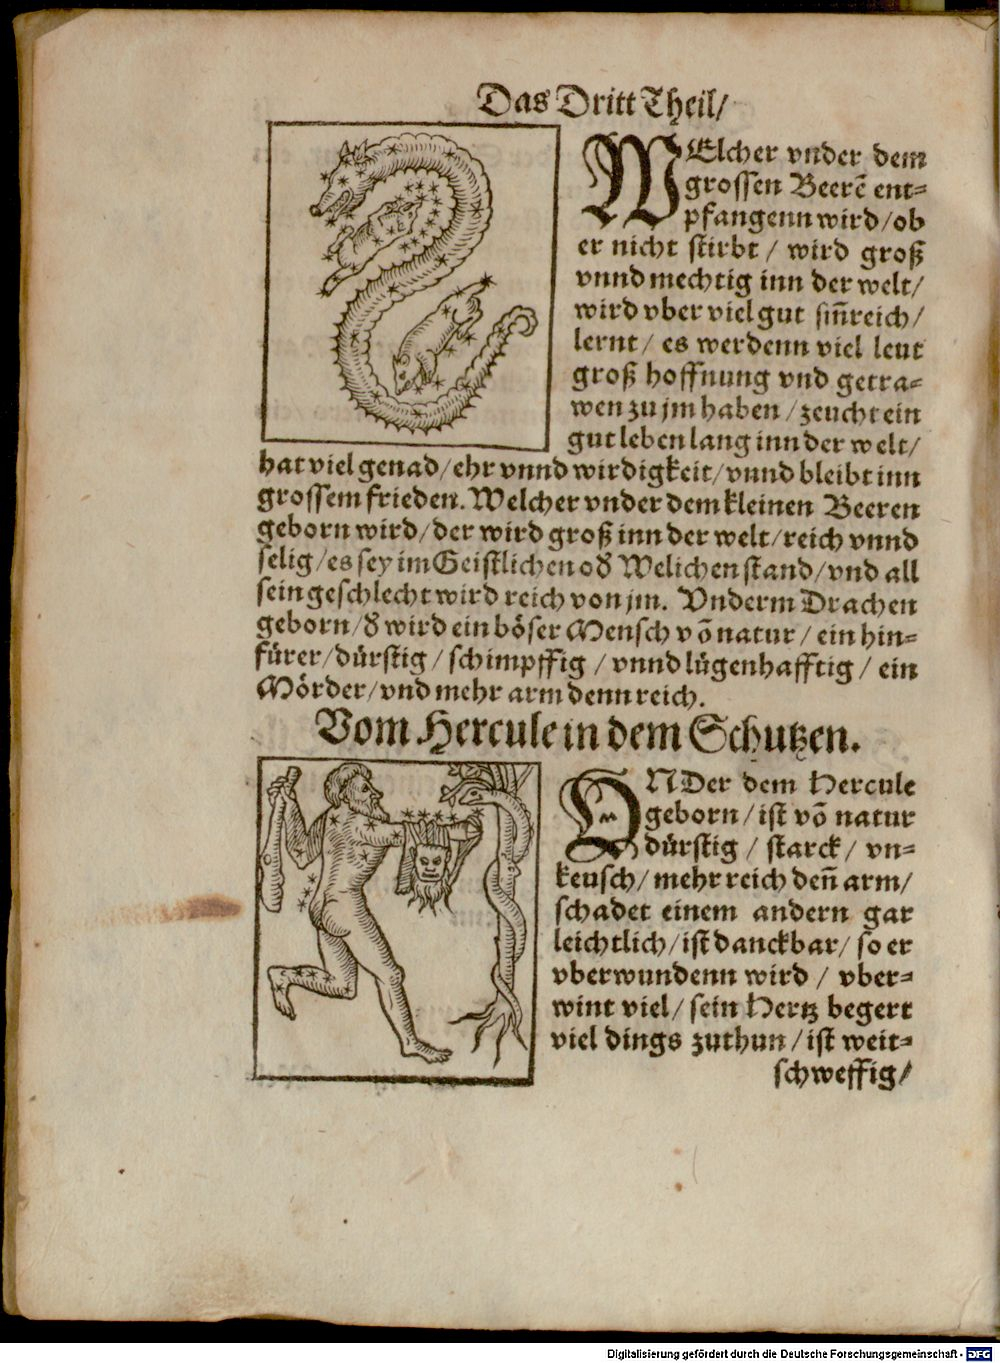 Das Dritt Theil/
WElcher vnder dem
grossen Beerẽ ent-
pfangenn wird/ob
er nicht stirbt / wird groß
vnnd mechtig inn der welt/
wird vber viel gut siñreich/
lernt/ es werdenn viel leut
groß hoffnung vnd getra-
wen zu jm haben /zeucht ein
gut leben lang inn der welt/
hat viel genad/ehr vnnd wirdigkeit/vnnd bleibt inn
grossem frieden. Welcher vnder dem kleinen Beeren
geborn wird/der wird groß inn der welt/reich vnnd
selig/es sey im Geistlichen od Welichen stand/vnd all
sein geschlecht wird reich von jm. Vnderm Drachen
geborn/d wird ein böser Mensch võ natur/ ein hin-
fürer/dürstig/ schimpffig / vnnd lügenhafftig / ein
Mörder/vnd mehr arm denn reich.
Vom Hercule in dem Schutzen.
VNDer dem Hercule
geborn/ist võ natur
dürstig / starck/ vn-
keusch/mehr reich deñ arm/
schadet einem andern gar
leichtlich/ist danckbar/ so er
vberwundenn wird / vber-
wint viel/ sein Hertz begert
viel dings zuthun/ist weit-
schweffig/
Digitalisierung gefördert durch die Deutsche Forschungsgemeinschaft - DFG